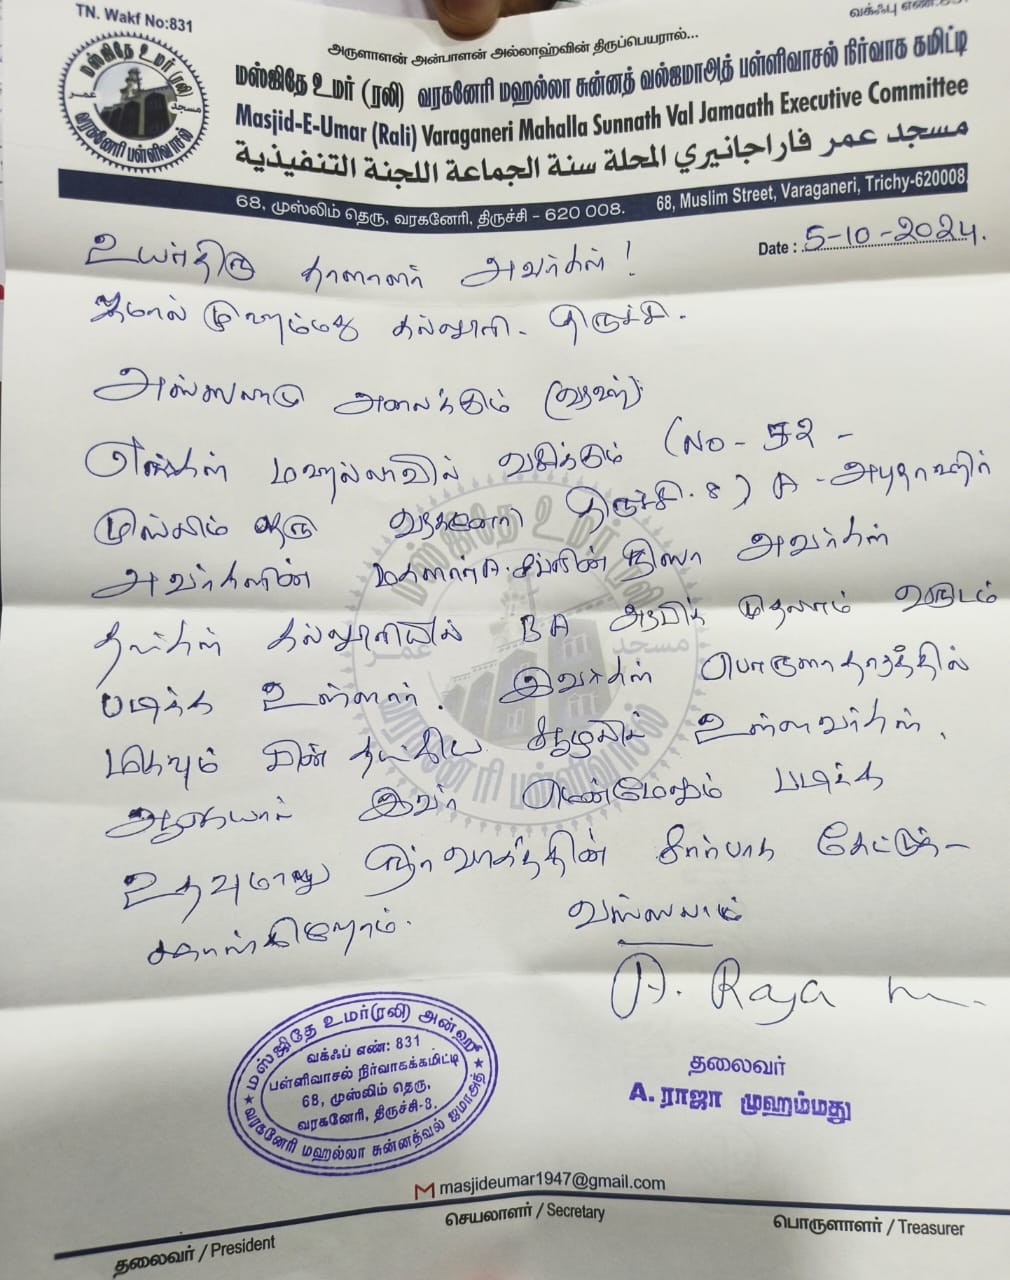 TN. Wakf No:831
வக்ஃபு எண்:831
அருளாளன் அன்பாளன் அல்லாஹ்வின் திருப்பெயரால்...
மஸ்ஜிதே உமர் (ரலி) வரகனேரி மஹல்லா சுன்னத் வல்ஜமாஅத் பள்ளிவாசல் நிர்வாக கமிட்டி
Masjid-E-Umar (Rali) Varaganeri Mahalla Sunnath Val Jamaath Executive Committee
مسجد عمر فاراجانيري المحلة سنة الجماعة اللجنة التنفيذية
68, முஸ்லிம் தெரு, வரகனேரி, திருச்சி - 620 008. 68, Muslim Street, Varaganeri, Trichy-620008
Date : 5-10-2024.
உயர்திரு தாளாளர் அவர்கள் !
ஜமால் முஹம்மது கல்லூரி - திருச்சி.
அஸ்ஸலாமு அலைக்கும் (வரஹ்)
எங்கள் மஹல்லாவில் வசிக்கும் (No - 52 -
முஸ்லிம் தெரு வரகனேரி திருச்சி. 8) A - அபுதாஹிர்
அவர்களின் மகளார் A. நிஸா அவர்கள்
தங்கள் கல்லூரியில் BA அரபிக் முதலாம் வருடம்
படிக்க உள்ளார். இவர்கள் பொருளாதாரத்தில்
மிகவும் பின் தங்கிய சூழலில் உள்ளவர்கள்.
ஆகையால் இவர் மென்மேலும் படிக்க
உதவுமாறு நிர்வாகத்தின் சார்பாக கேட்டுக்-
கொள்கிறோம். வஸ்ஸலாம்
A. Raja m.
மஸ்ஜிதே உமர்(ரலி) அன்ஹு
வக்ஃப் எண்: 831
பள்ளிவாசல் நிர்வாகக்கமிட்டி
68, முஸ்லிம் தெரு,
வரகனேரி, திருச்சி-8.
வரகனேரி மஹல்லா சுன்னத்வல் ஜமாஅத்
தலைவர்
A. ராஜா முஹம்மது
masjideumar1947@gmail.com
தலைவர் / President செயலாளர் / Secretary பொருளாளர் / Treasurer